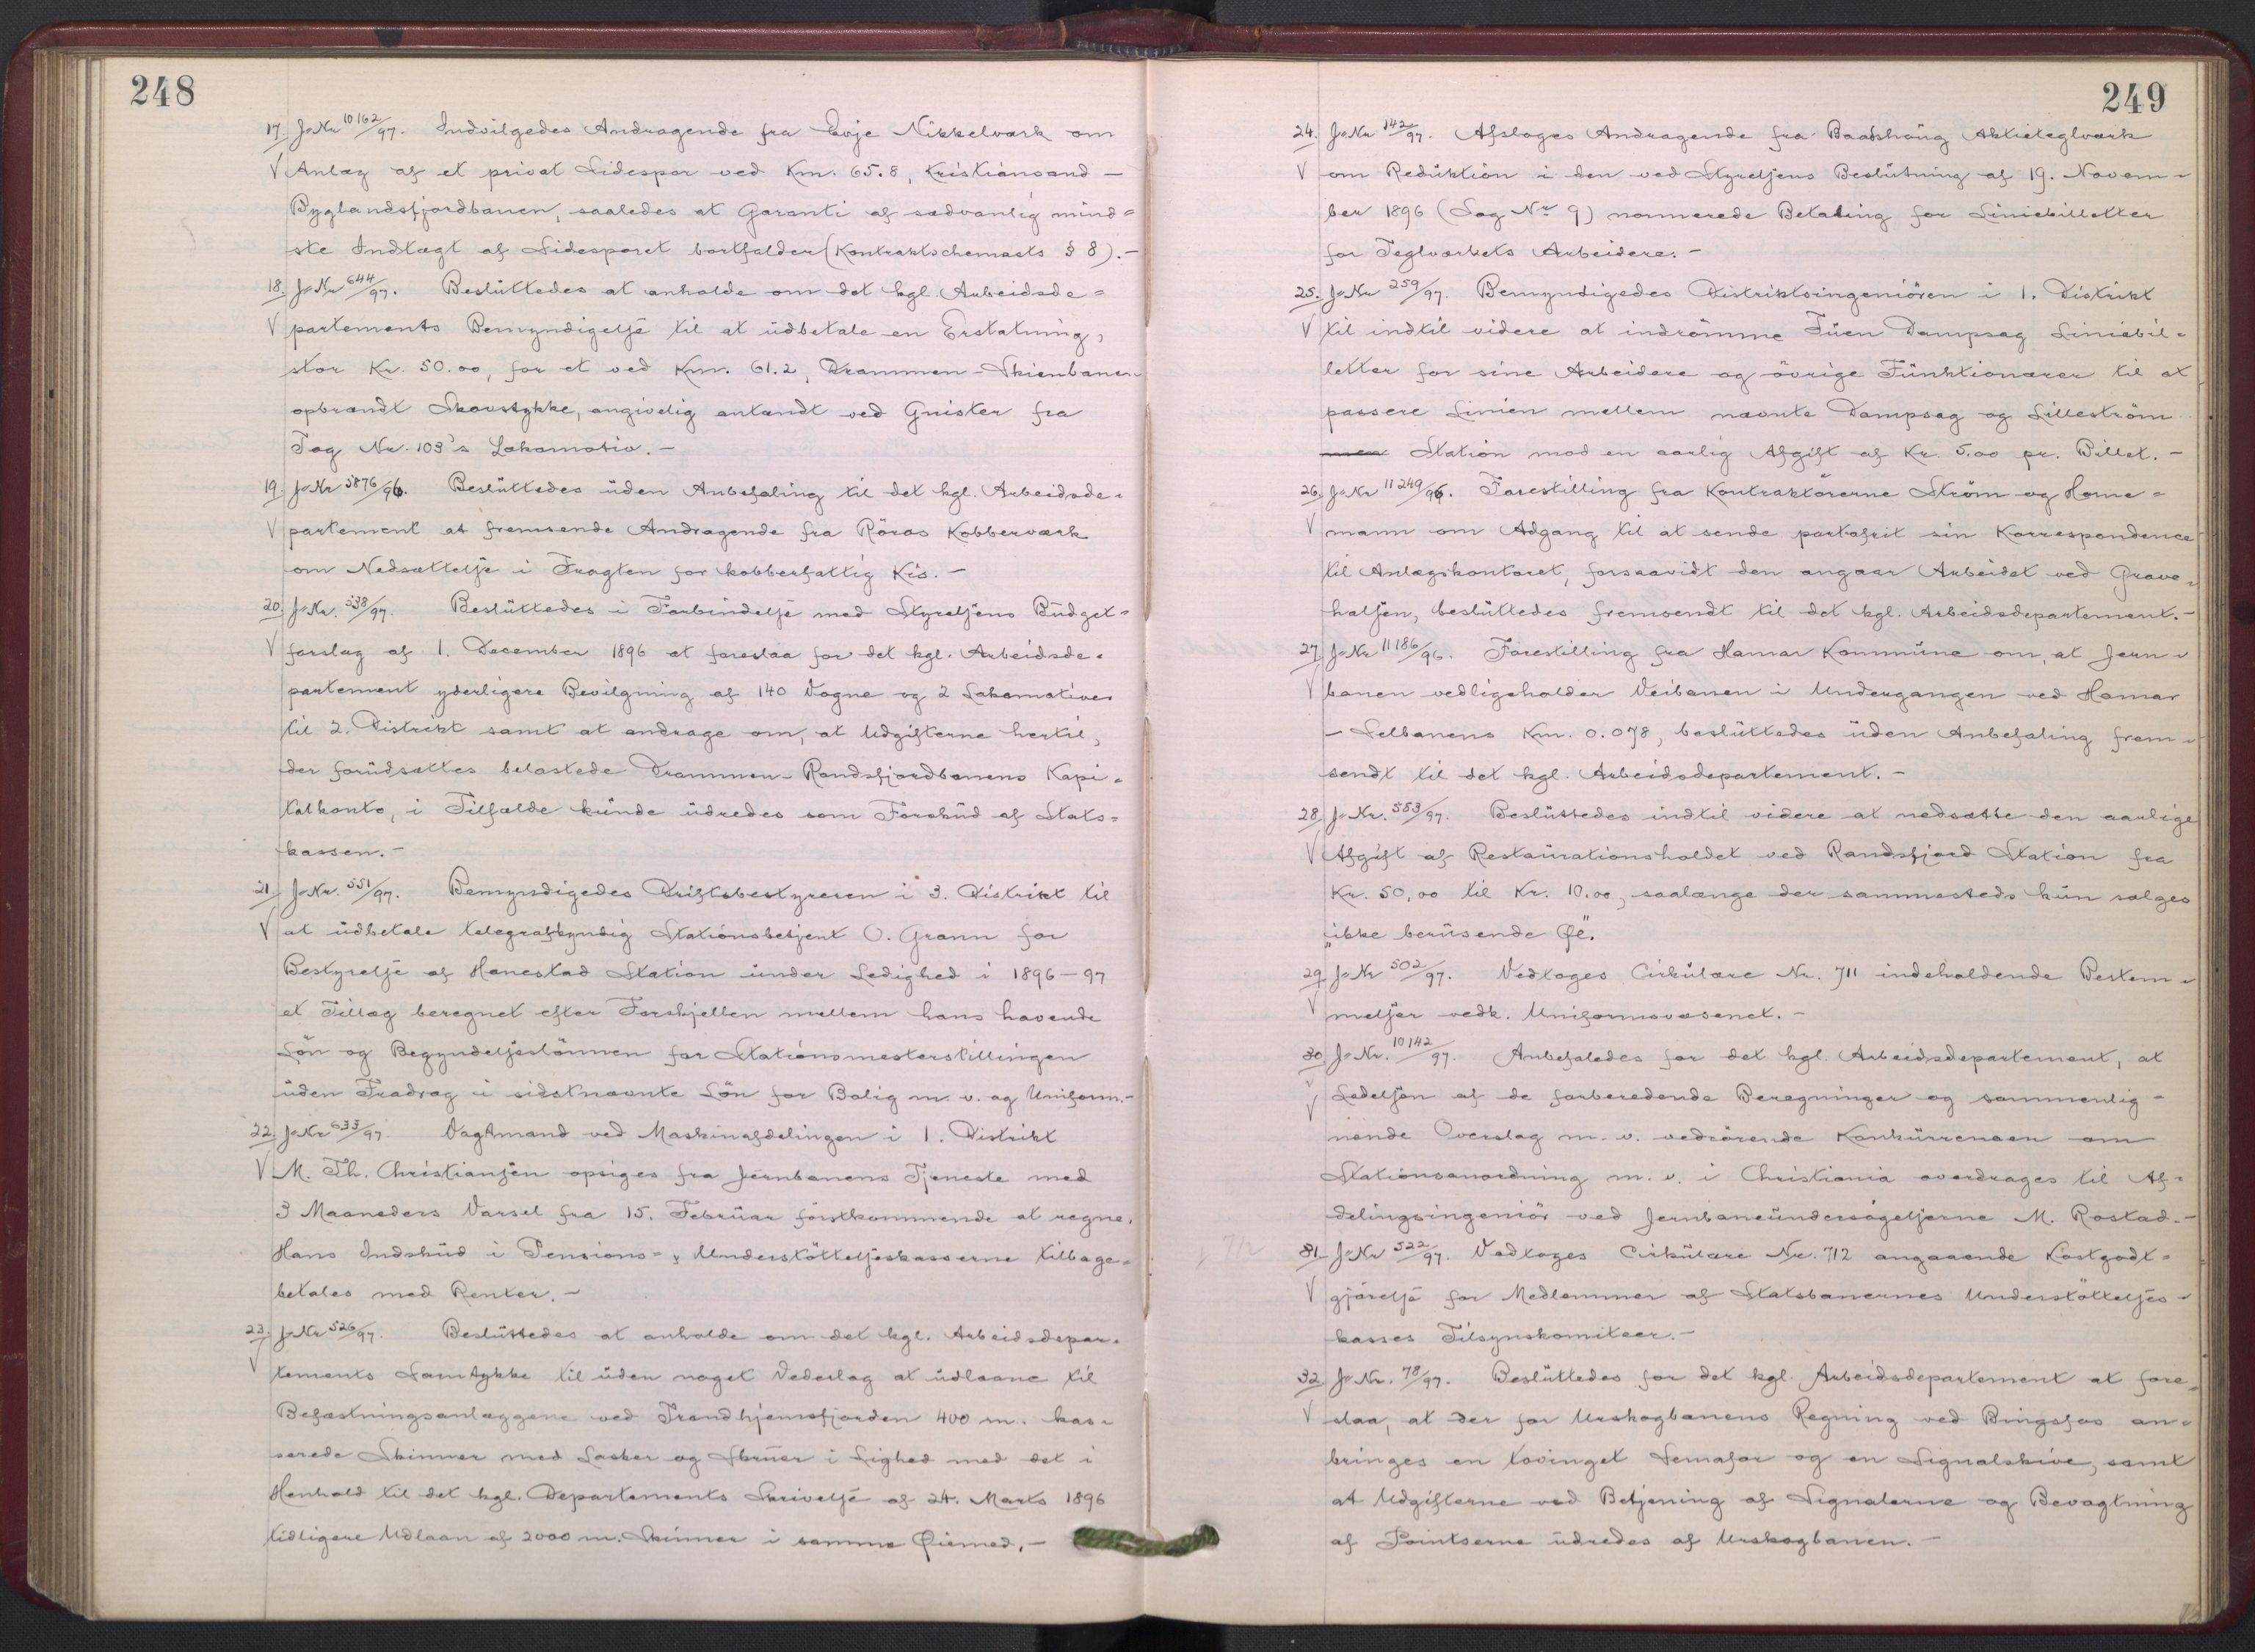 248
17. J-Nr 10162/97. Indvilgedes Andragende fra Evje Nikkelværk om
V Anlæg af et privat Sidespor ved Km. 65.8, Kristiansand -
Byglandsfjordbanen, saaledes at Garanti af sædvanlig mind=
ste Indtægt af Sidesporet bortfalder (Kontraktschemaets § 8). -
18. J-Nr 644/97. Besluttedes at anholde om det kgl. Arbeidsde=
V partements Bemyndigelse til at udbetale en Erstatning,
stor Kr. 50.00, for et ved Km. 61.2, Drammen-Skienbanen
opbrændt Skovstykke, angivelig antændt ved Gnister fra
Tog Nr. 103's Lokomotiv. -
19. J-Nr 5876/96. Besluttedes uden Anbefaling til det kgl. Arbeidsde=
V partement at fremsende Andragende fra Röros Kobberværk
om Nedsættelse i Fragten for kobberfattig Kis. -
20. J-Nr. 538/97. Besluttedes i Forbindelse med Styrelsens Budget=
V forslag af 1. December 1896 at foreslaa for det kgl. Arbeidsde=
partement yderligere Bevilgning af 140 Vogne og 2 Lokomotiver
til 2. Distrikt samt at andrage om, at Udgifterne hertil,
der forudsættes belastede Drammen-Randsfjordbanens Kapi=
talkonto, i Tilfælde kunde udredes som Forskud af Stats=
kassen. -
21. J-Nr. 551/97. Bemyndigedes Driftsbestyreren i 3. Distrikt til
V at udbetale telegrafkyndig Stationsbetjent O. Grann for
Bestyrelse af Hanestad Station under Ledighed i 1896-97
et Tillæg beregnet efter Forskjellen mellem hans havende
Lön og Begyndelseslönnen for Stationsmesterstillingen
uden Fradrag i sidstnævnte Lön for Bolig m. v. og Uniform. -
22. J-Nr 633/97. Vagtmand ved Maskinafdelingen i 1. Distrikt
V M. Th. Christiansen opsiges fra Jernbanens Tjeneste med
3 Maaneders Varsel fra 15. Februar förstkommende at regne.
Hans Indskud i Pensions- & Understöttelseskasserne tilbage=
betales med Renter. -
23. J-Nr 526/97. Besluttedes at anholde om det kgl. Arbeidsdepar=
V tements Samtykke til uden noget Vederlag at udlaane til
Befæstningsanlæggene ved Trondhjemsfjorden 400 m. kas=
serede Skinner med Lasker og Skruer i Lighed med det i
Henhold til det kgl. Departements Skrivelse af 24. Marts 1896
tidligere Udlaan af 2000 m. Skinner i samme Øiemed. -
249
24. J-Nr 142/97. Afsloges Andragende fra Baastaug Aktieteglværk
V om Reduktion i den ved Styrelsens Beslutning af 19. Novem=
ber 1896 (Sag Nr 9) normerede Betaling for Liniebilletter
for Teglværkets Arbeidere. -
25. J-Nr 259/97. Bemyndigedes Distriktsingeniören i 1. Distrikt
V til indtil videre at indrömme Tuen Dampsag Liniebil=
letter for sine Arbeidere og övrige Funktionærer til at
passere Linien mellem nævnte Dampsag og Lilleström
Station mod en aarlig Afgift af Kr. 5.00 pr. Billet. -
26. J-Nr 11249/96. Forestilling fra Kontraktörerne Ström og Horne=
V mann om Adgang til at sende portofrit sin Korrespondence
til Anlægskontoret, forsaavidt den angaar Arbeidet ved Grave=
halsen, besluttedes fremsendt til det kgl. Arbeidsdepartement. -
27. J-Nr 11186/96. Forestilling fra Hamar Kommune om, at Jern=
V banen vedligeholder Veibanen i Undergangen ved Hamar
- Selbanens Km. 0.078, besluttedes uden Anbefaling frem=
sendt til det kgl. Arbeidsdepartement. -
28. J-Nr. 553/97. Besluttedes indtil videre at nedsætte den aarlige
V Afgift af Restaurationsholdet ved Randsfjord Station fra
Kr. 50.00 til Kr. 10.00, saalænge der sammesteds kun sælges
„ikke berusende Øl".
29. J-Nr 502/97. Vedtoges Cirkulære Nr. 711 indeholdende Bestem=
V melser vedk. Uniformsvæsenet. -
30. J-Nr. 10142/97. Anbefaledes for det kgl. Arbeidsdepartement, at
V Ledelsen af de forberedende Beregninger og sammenlig=
nende Overslag m. v. vedrörende Konkurrencen om
Stationsanordning m. v. i Christiania overdrages til Af=
delingsingeniör ved Jernbaneundersögelserne M. Rostad. -
712
31. J-Nr 522/97. Vedtoges Cirkulære Nr. 712 angaaende Kostgodt=
V gjörelse for Medlemmer af Statsbanernes Understöttelses=
kasses Tilsynskomiteer. -
32. J-Nr. 78/97. Besluttedes for det kgl. Arbeidsdepartement at fore=
V slaa, at der for Urskogbanens Regning ved Bingsfos an=
bringes en tovinget Semafor og en Signalskive, samt
at Udgifterne ved Betjening af Signalerne og Bevogtning
af Pointserne udredes af Urskogbanen. -